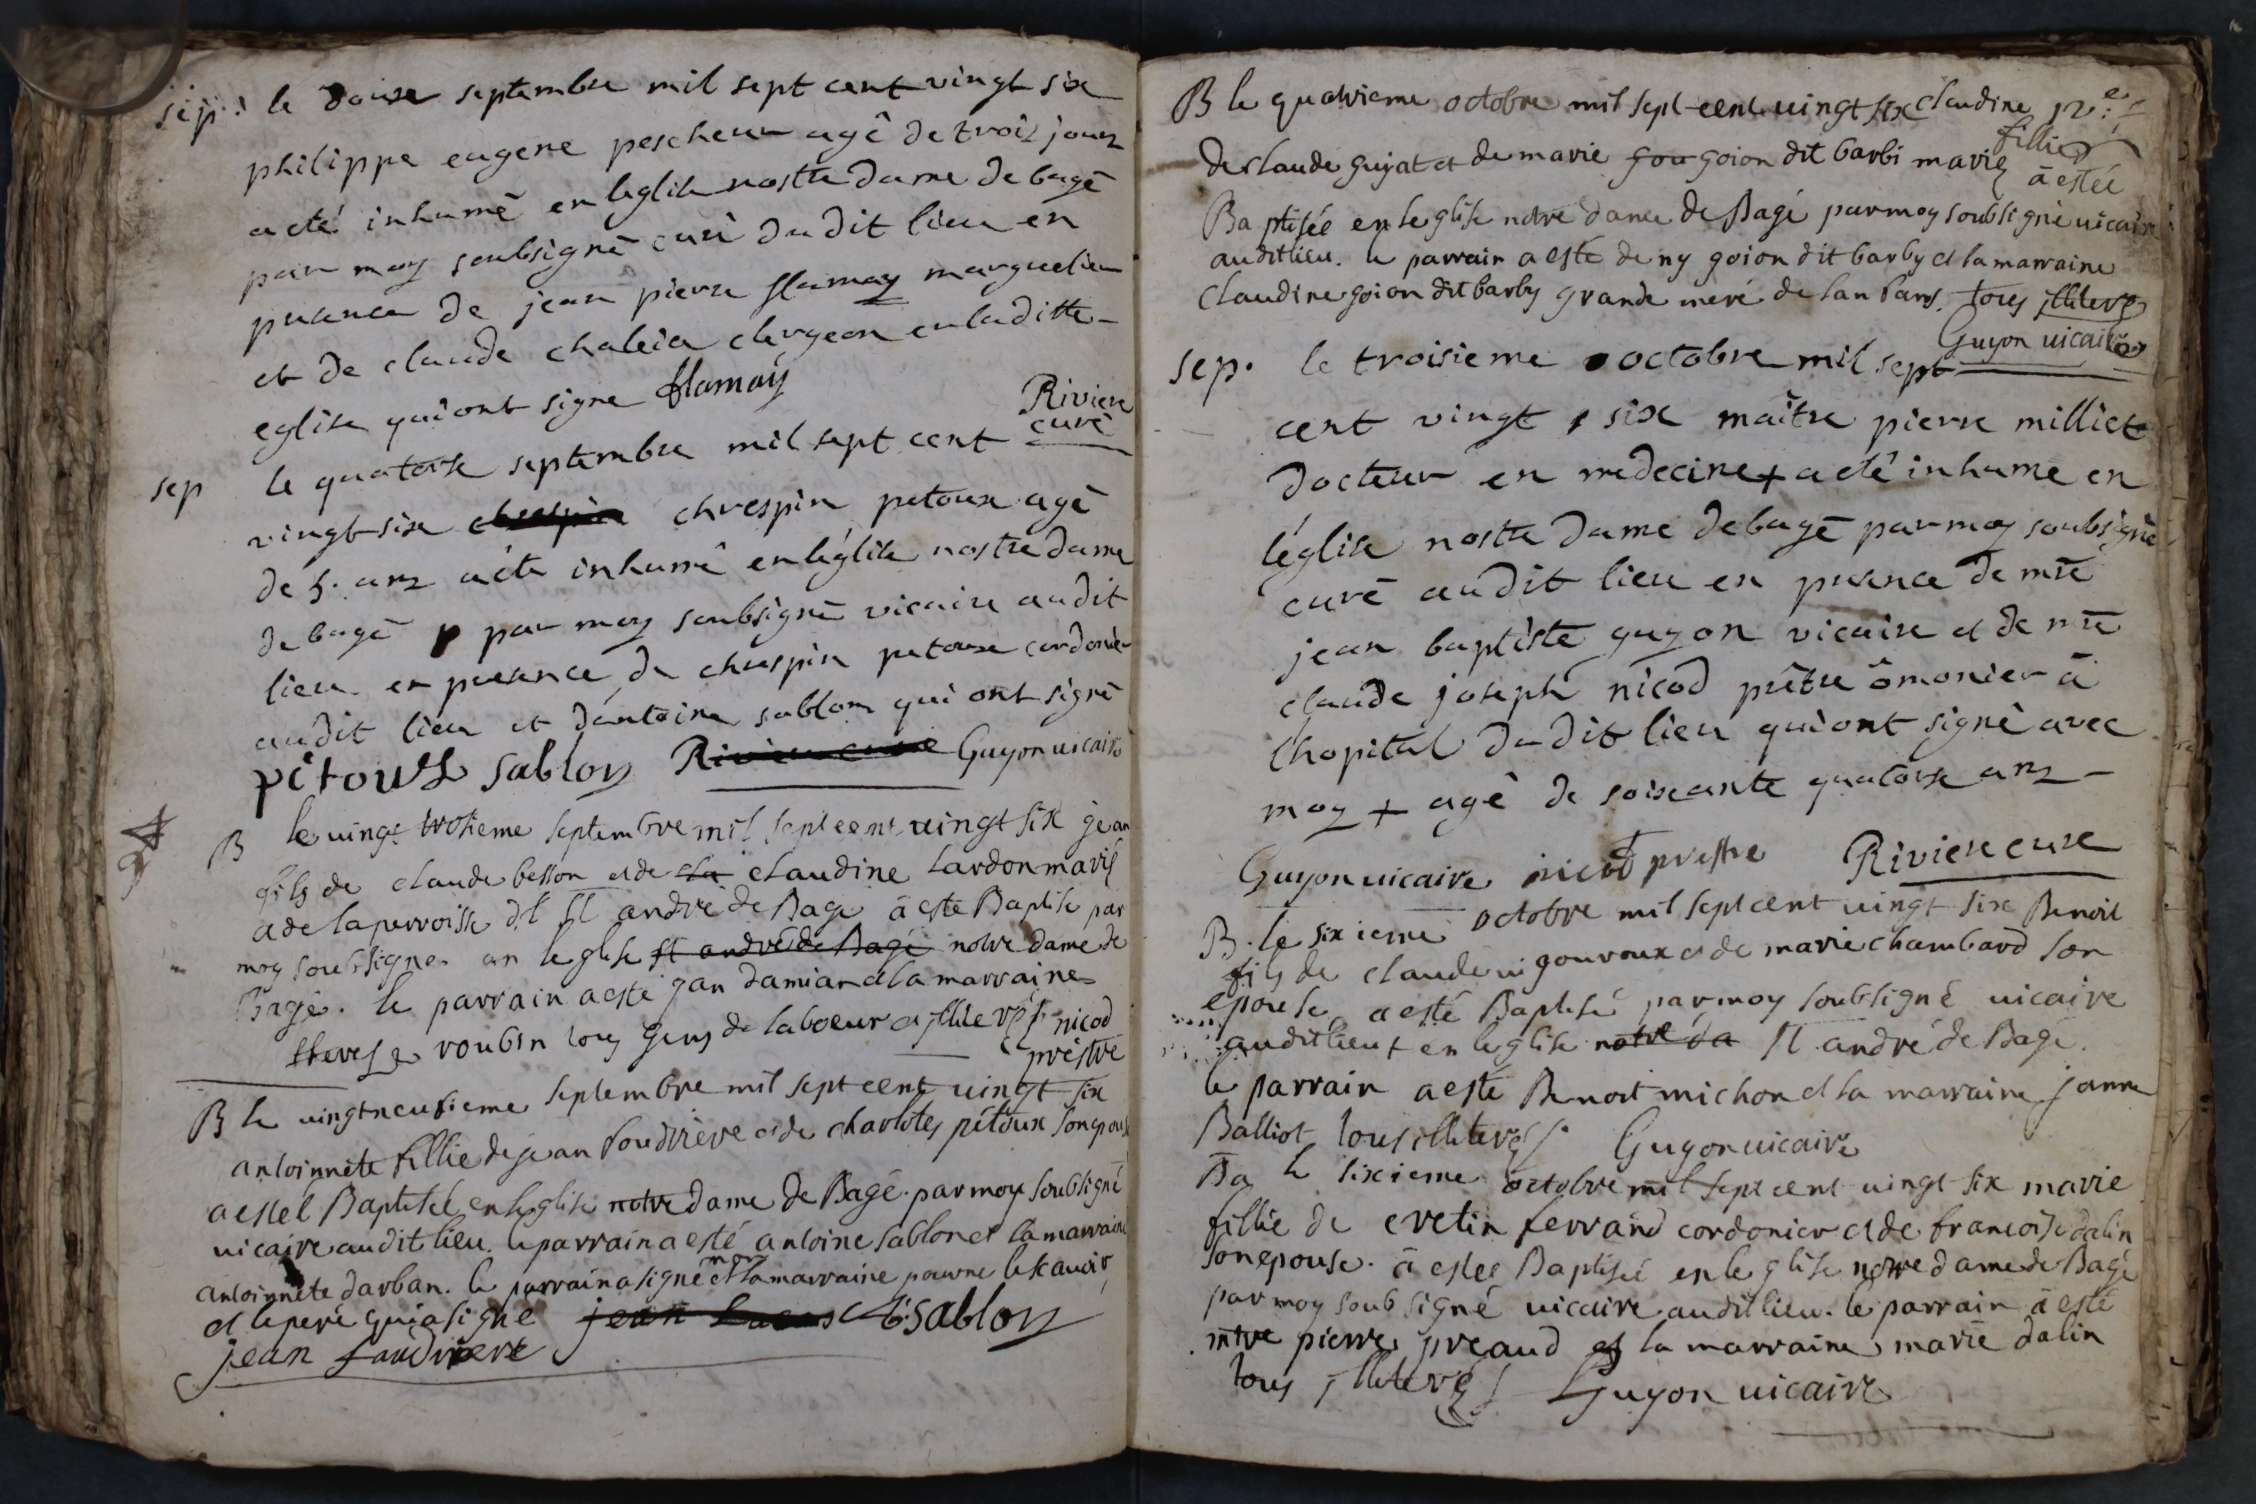 sep. le douze septembre mil sept cent vingt six
philippe eugene pescheur agê de trois jours
a eté inhumé en leglise nostre dame de bagé
par moy soubsigné curé dudit lieu en
presence de jean pierre flamay marguelier
et de claude chaleia clergeon en laditte
eglise qui ont signe flamay
Riviere
curé
sep le quatorse septembre mil sept cent
vingt six chrespin petoux agé
de 5. ans a eté inhumé en l'église nostre dame
de bagé par moy soubsigné vicaire audit
lieu en presence de chrespin petoux cordonier
audit lieu et d'antoine sablon qui ont signé
pitoux sablon Riviere curé Guyon uicaire
B le uingt troisieme septembre mil sept cent uingt six jean
fils de claude besson et de cla claudine lardon mariés
a de la parroisse dt St andré de Bagé a esté Baptisé par
moy soubsigné an leglise st andré de Bagé notre dame de
Bagé. le parrain a esté jan damian et la marraine
therese roubin tous gens de laboeur et illiterés nicod
prestre
B le uingtneufieme septembre mil sept cent uingt six
antoinnete fillie de jean foudriere et de charlotes petoux son epouse
a esteé Baptiseé en leglise notre dame de Bagé. par moy soubsigné
uicaire audit lieu. le parrain a esté antoine sablon et la marraine
antoinnete darban. le parrain a signé et non la marraine pour ne le scauoir
et le pere qui a signé jean A. sablon
jean faudriere
B le quatrieme octobre mil sept cent uingt six claudine
fillie
de claude guyat et de marie gou goion dit barbi mariés a estée
Baptisée en leglise notre dame de Bagé par moy soubsigné uicaire
audit lieu. le parrain a esté deny goion dit barby et la marraine
claudine goion dit barby grande meré de lanfans. tous illiterés
Guyon uicaire
sep. le troisieme octobre mil sept
cent vingt six maître pierre milliet
docteur en medecine + a eté inhumé en
l'église nostre dame de bagé par moy soubsigné
curé audit lieu en presence de mre
jean baptiste guyon vicaire et de mre
claude joseph nicod prêtre ômonier â
lhopital dudit lieu qui ont signé avec
moy + agé de soixante quatorse ans
Guyon uicaire nicod prestre Riviere curé
B. le sixieme octobre mil sept cent uingt six Benoit
fils de claude uigouroux et de marie chambard son
epouse a esté Baptisé par moy soubsigné uicaire
audit lieu + en leglise notre da St andré de Bagé.
le parrain a esté Benoit michon et la marraine janne
Balliot tous illiterés. Guyon uicaire
Ba le sixieme octobre mil sept cent uingt six marie
fillie de cretin ferrand cordonier et de francoise dalin
son epouse. a esteé Baptiseé en leglise notre dame de Bagé
par moy soubsigné uicaire audit lieu. le parrain a esté
mtre pierre preaud et la marraine marie dalin
tous illiterés Guyon uicaire